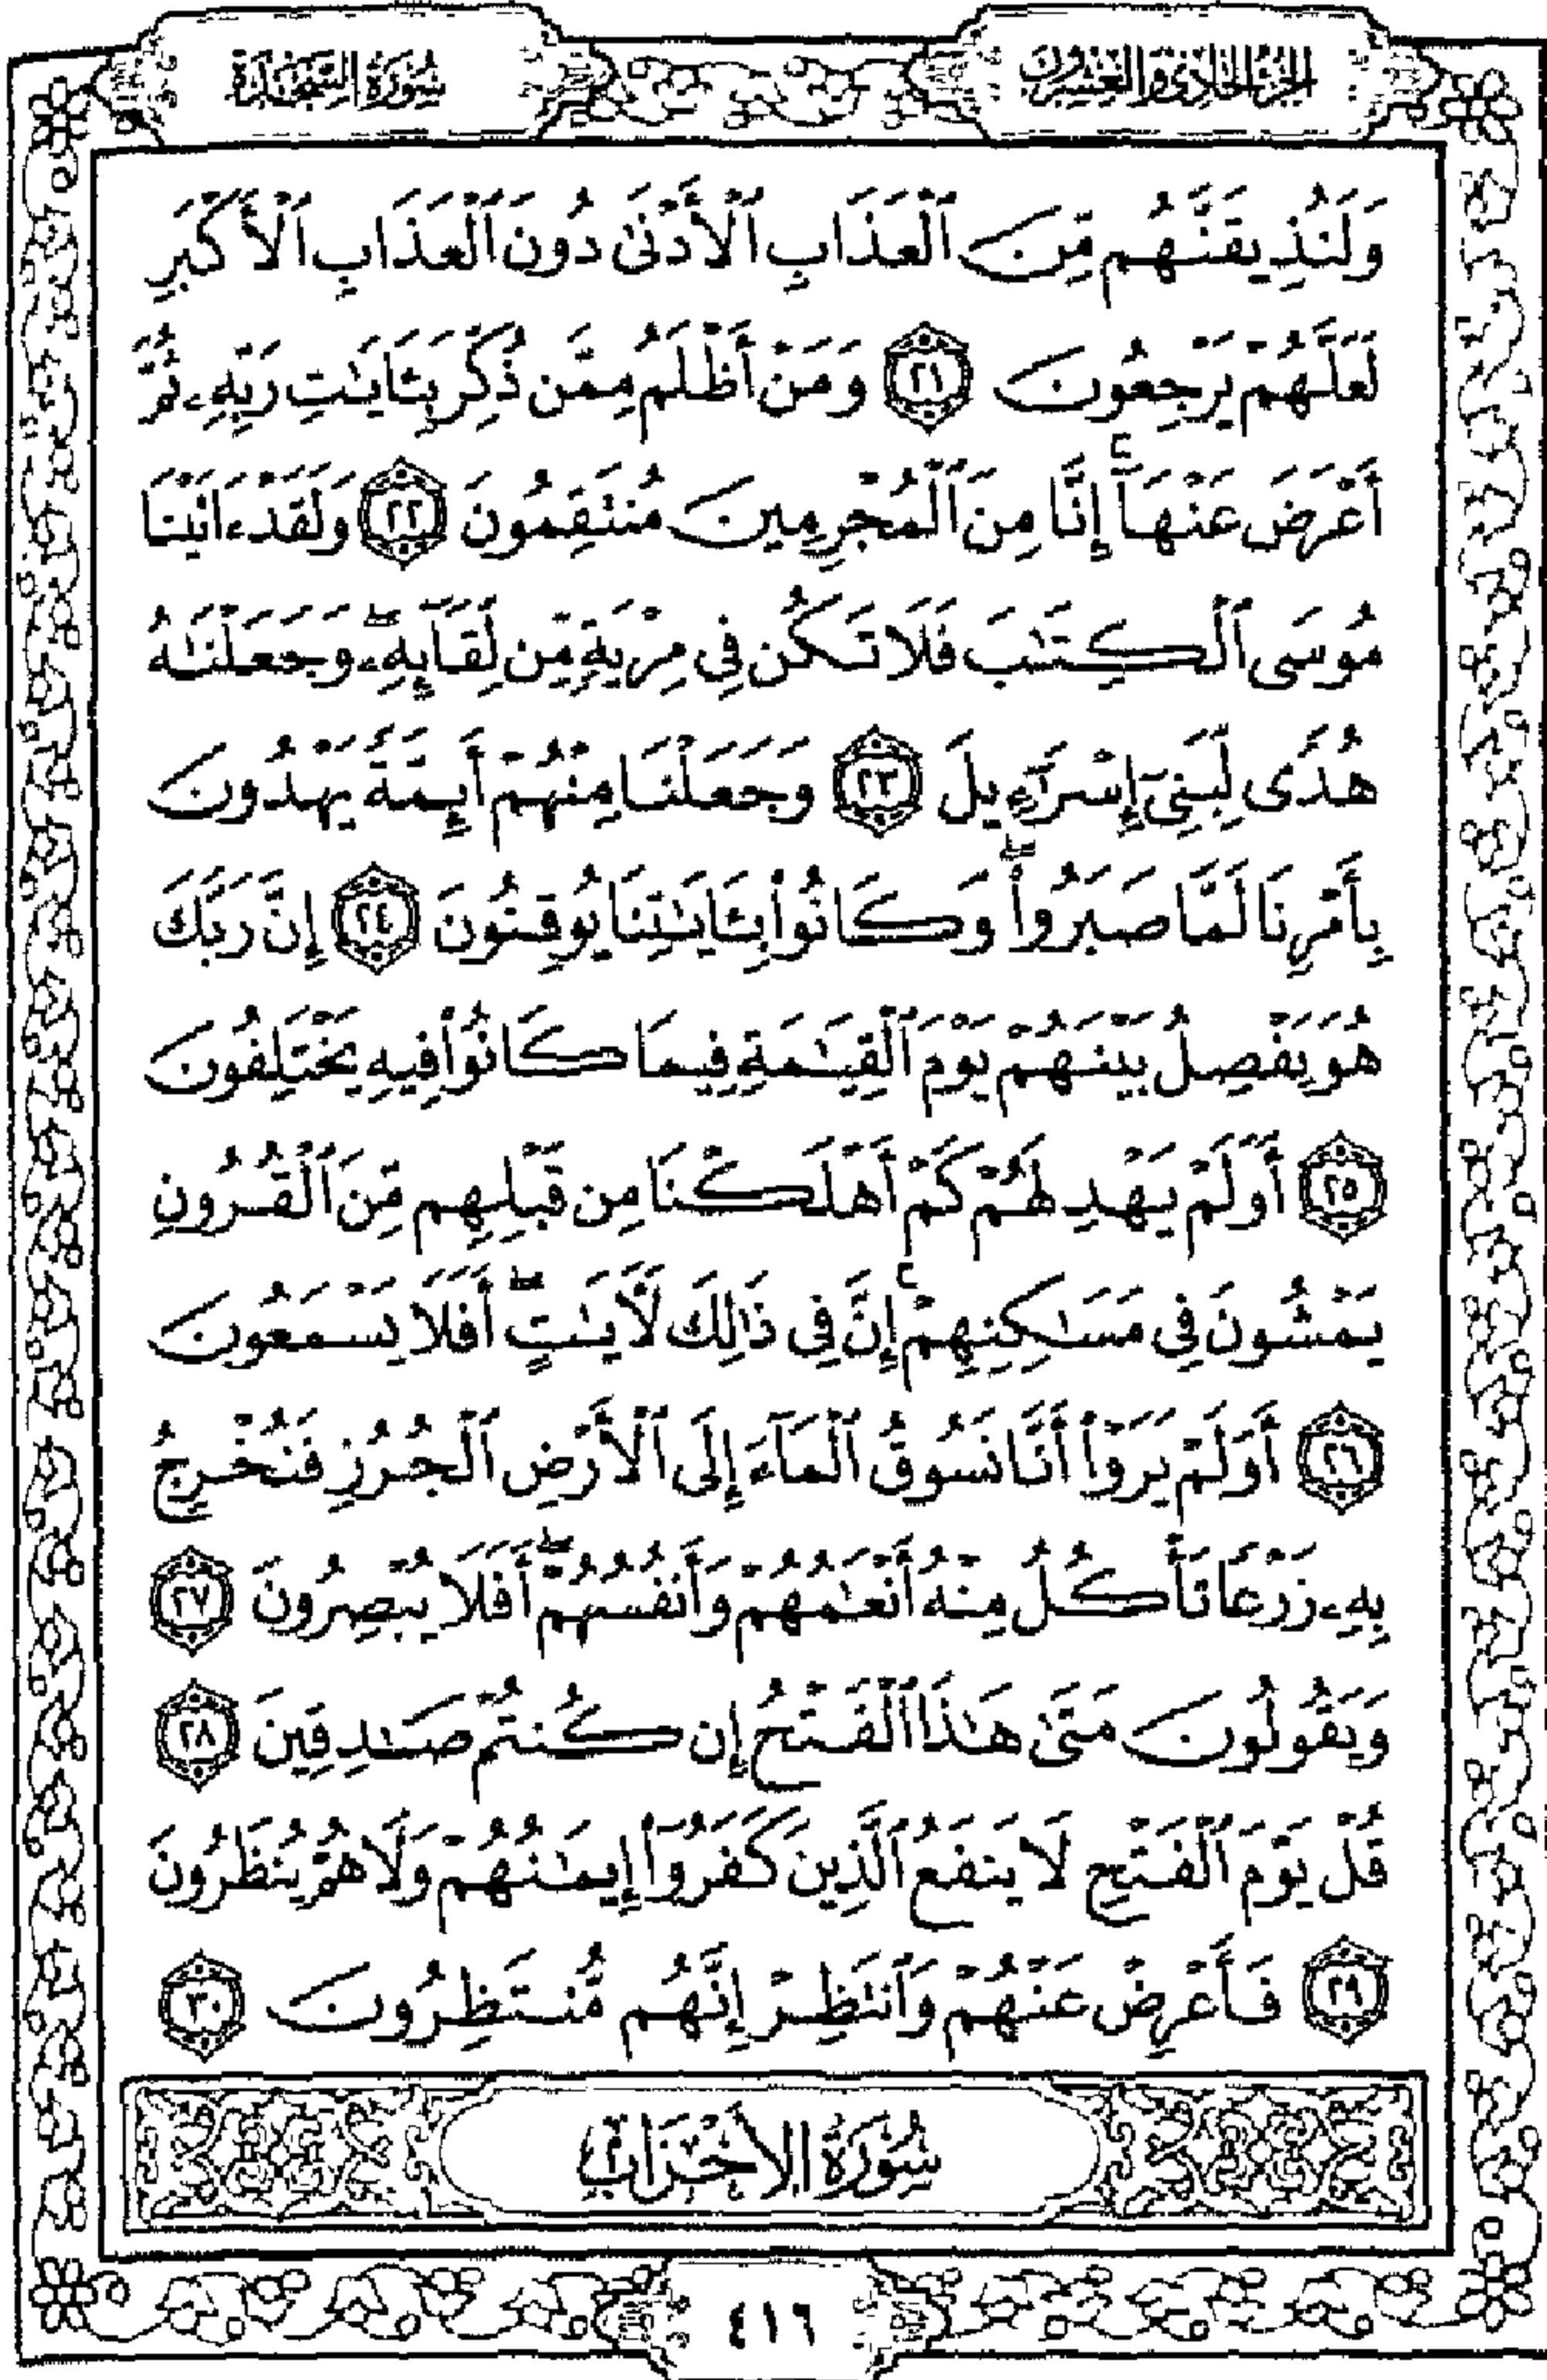 الجزء الحادي والعشرون
سورة السجدة
وَلَنُذِيقَنَّهُم مِّنَ ٱلْعَذَابِ ٱلْأَدْنَىٰ دُونَ ٱلْعَذَابِ ٱلْأَكْبَرِ
لَعَلَّهُمْ يَرْجِعُونَ ﴿٢١﴾ وَمَنْ أَظْلَمُ مِمَّن ذُكِّرَ بِـَٔايَـٰتِ رَبِّهِۦ ثُمَّ
أَعْرَضَ عَنْهَآ ۚ إِنَّا مِنَ ٱلْمُجْرِمِينَ مُنتَقِمُونَ ﴿٢٢﴾ وَلَقَدْ ءَاتَيْنَا
مُوسَى ٱلْكِتَـٰبَ فَلَا تَكُن فِى مِرْيَةٍ مِّن لِّقَآئِهِۦ ۖ وَجَعَلْنَـٰهُ
هُدًى لِّبَنِىٓ إِسْرَٰٓءِيلَ ﴿٢٣﴾ وَجَعَلْنَا مِنْهُمْ أَئِمَّةً يَهْدُونَ
بِأَمْرِنَا لَمَّا صَبَرُوا۟ ۖ وَكَانُوا۟ بِـَٔايَـٰتِنَا يُوقِنُونَ ﴿٢٤﴾ إِنَّ رَبَّكَ
هُوَ يَفْصِلُ بَيْنَهُمْ يَوْمَ ٱلْقِيَـٰمَةِ فِيمَا كَانُوا۟ فِيهِ يَخْتَلِفُونَ
﴿٢٥﴾ أَوَلَمْ يَهْدِ لَهُمْ كَمْ أَهْلَكْنَا مِن قَبْلِهِم مِّنَ ٱلْقُرُونِ
يَمْشُونَ فِى مَسَـٰكِنِهِمْ ۚ إِنَّ فِى ذَٰلِكَ لَـَٔايَـٰتٍ ۖ أَفَلَا يَسْمَعُونَ
﴿٢٦﴾ أَوَلَمْ يَرَوْا۟ أَنَّا نَسُوقُ ٱلْمَآءَ إِلَى ٱلْأَرْضِ ٱلْجُرُزِ فَنُخْرِجُ
بِهِۦ زَرْعًا تَأْكُلُ مِنْهُ أَنْعَـٰمُهُمْ وَأَنفُسُهُمْ ۖ أَفَلَا يُبْصِرُونَ ﴿٢٧﴾
وَيَقُولُونَ مَتَىٰ هَـٰذَا ٱلْفَتْحُ إِن كُنتُمْ صَـٰدِقِينَ ﴿٢٨﴾
قُلْ يَوْمَ ٱلْفَتْحِ لَا يَنفَعُ ٱلَّذِينَ كَفَرُوٓا۟ إِيمَـٰنُهُمْ وَلَا هُمْ يُنظَرُونَ
﴿٢٩﴾ فَأَعْرِضْ عَنْهُمْ وَٱنتَظِرْ إِنَّهُم مُّنتَظِرُونَ ﴿٣٠﴾
سُورَةُ الأَحْزَابِ
٤١٦